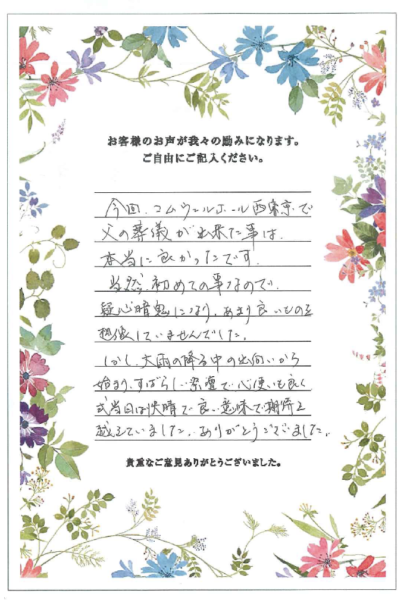 お客様のお声が我々の励みになります。
ご自由にご記入ください。
今回、コムウェルホール西東京で
父の葬儀が出来た事は、
本当に良かったです。
当然初めての事なので、
疑心暗鬼になり、あまり良いものを
想像していませんでした。
しかし、大雨の降る中の出向いから
始まり、すばらしい祭壇で心使いも良く
式当日は快晴で良い意味で期待を
越えていました。ありがとうございました。
貴重なご意見ありがとうございました。